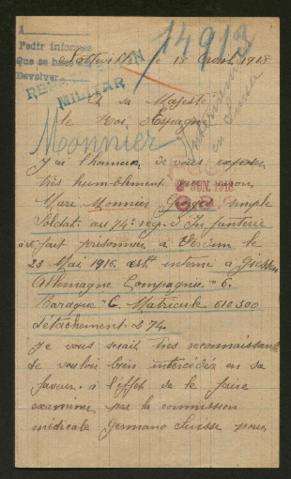 A
Pedir informes
Que se haga
Devolver
14913
MILITAR
le 18 Avril 1918
A sa Majesté
le Roi d'Espagne
Monnier
Internement
en Suisse
J'ai l'honneur de vous exposer
très humblement que mon
Mari Monnier Georges simple
Soldat au 74e Rég. d'Infanterie
fait prisonnier à Verdun le
23 Mai 1916. est interné à Giessen
Allemagne Compagnie 6.
Baraque C. Matricule 610.300
détachement 274.
Je vous serait très reconnaissante
de vouloir bien intercédez en sa
faveur à l'effet de le faire
examiner par la commission
médicale Germano Suisse pour